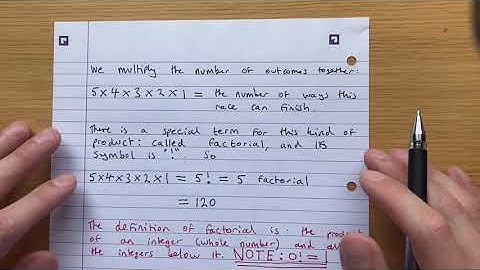 We multiply the number of outcomes together:
5×4×3×2×1 = the number of ways this
race can finish.
There is a special term for this kind of
product: called factorial, and its
symbol is "!". So
5×4×3×2×1 = 5! = 5 factorial
= 120
The definition of factorial is: the product
of an integer (whole number) and
the integers below it. NOTE: 0! = 1